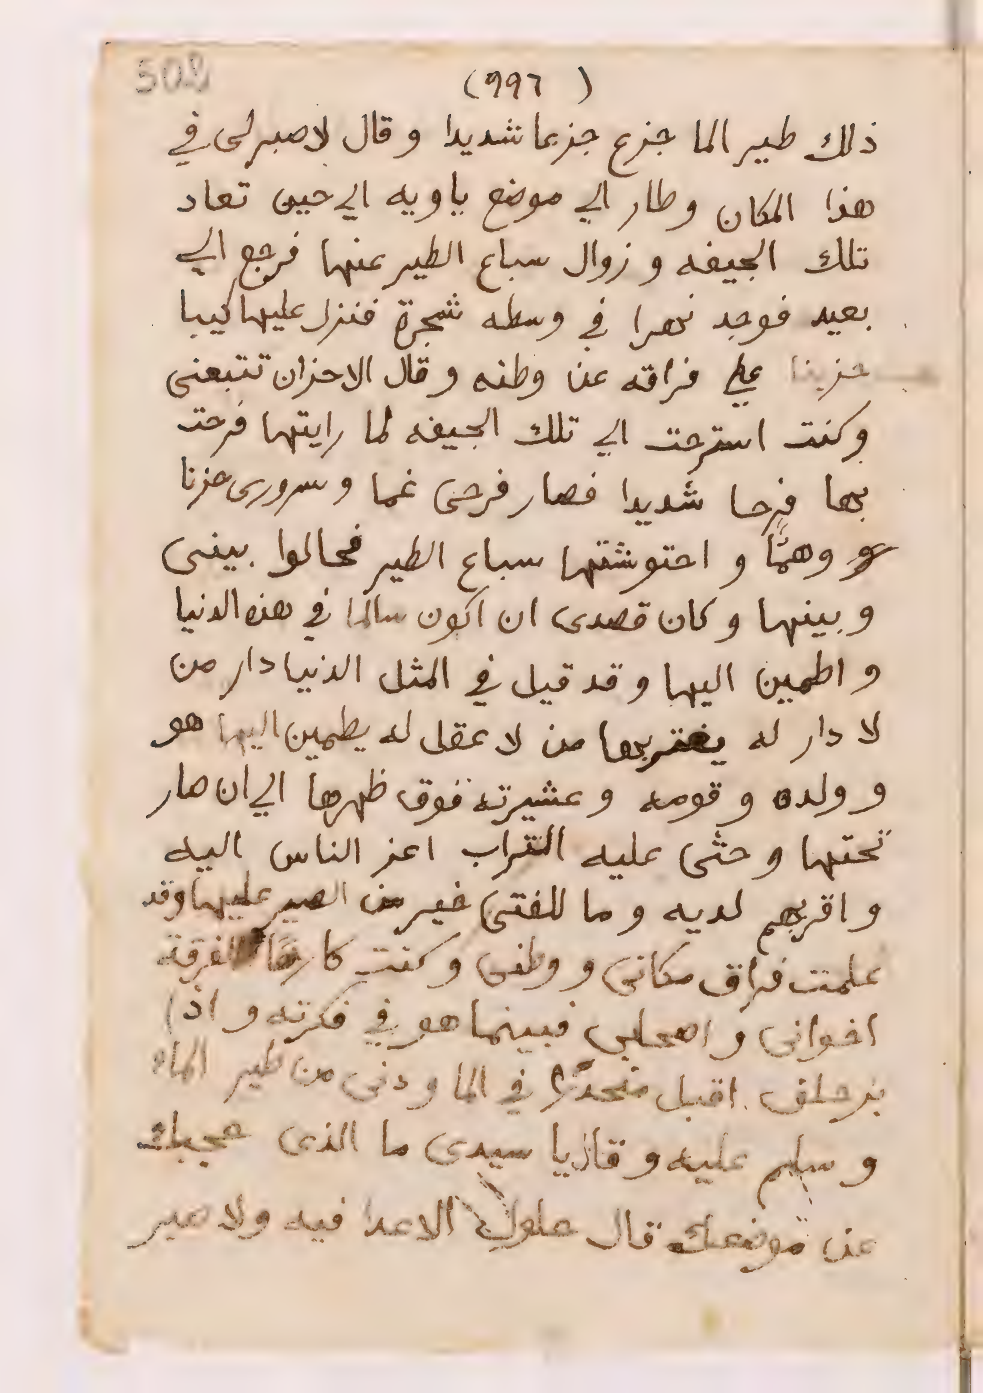 308
(٩٩٦)
ذلك طير الما جزع جزعا شديدا وقال لا صبر لى في
هذا المكان وطار الي موضع ياويه الي حين تعاد
تلك الجيفه وزوال سباع الطير عنها فرجع الي
بعيد فوجد نهرا في وسطه شجرة فنزل عليها كيبا
حزينا علي فراقه عن وطنه وقال الاحزان تتبعنى
وكنت استرحت الي تلك الجيفه لما رايتها فرحت
بها فرحا شديدا فصار فرحى غما وسرورى حزنا
وهمًّا واحتوشتها سباع الطير فحالوا بينى
وبينها وكان قصدى ان اكون سالما في هذه الدنيا
واطمين اليها وقد قيل في المثل الدنيا دار من
لا دار له يغتر بها من لا عقل له يطمين اليها هو
وولده وقومه وعشيرته فوق ظهرها الي ان صار
تحتها وحثى عليه التراب اعز الناس اليه
واقربهم لديه وما للفتى خير من الصبر عليها وقد
علمت فراق مكانى ووطنى وكنت كارهًا لفرقة
اخوانى واصحابى فبينما هو في فكرته واذا
بزحلف اقبل منحدرًا في الما ودنى من طير الماء
وسلم عليه وقال يا سيدى ما الذى حجبك
عن موضعك قال حلول الاعدا فيه ولا صبر